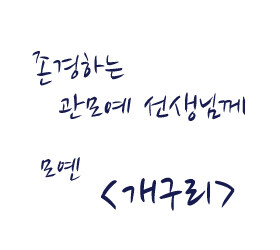 존경하는
관모예 선생님께
모옌
<개구리>